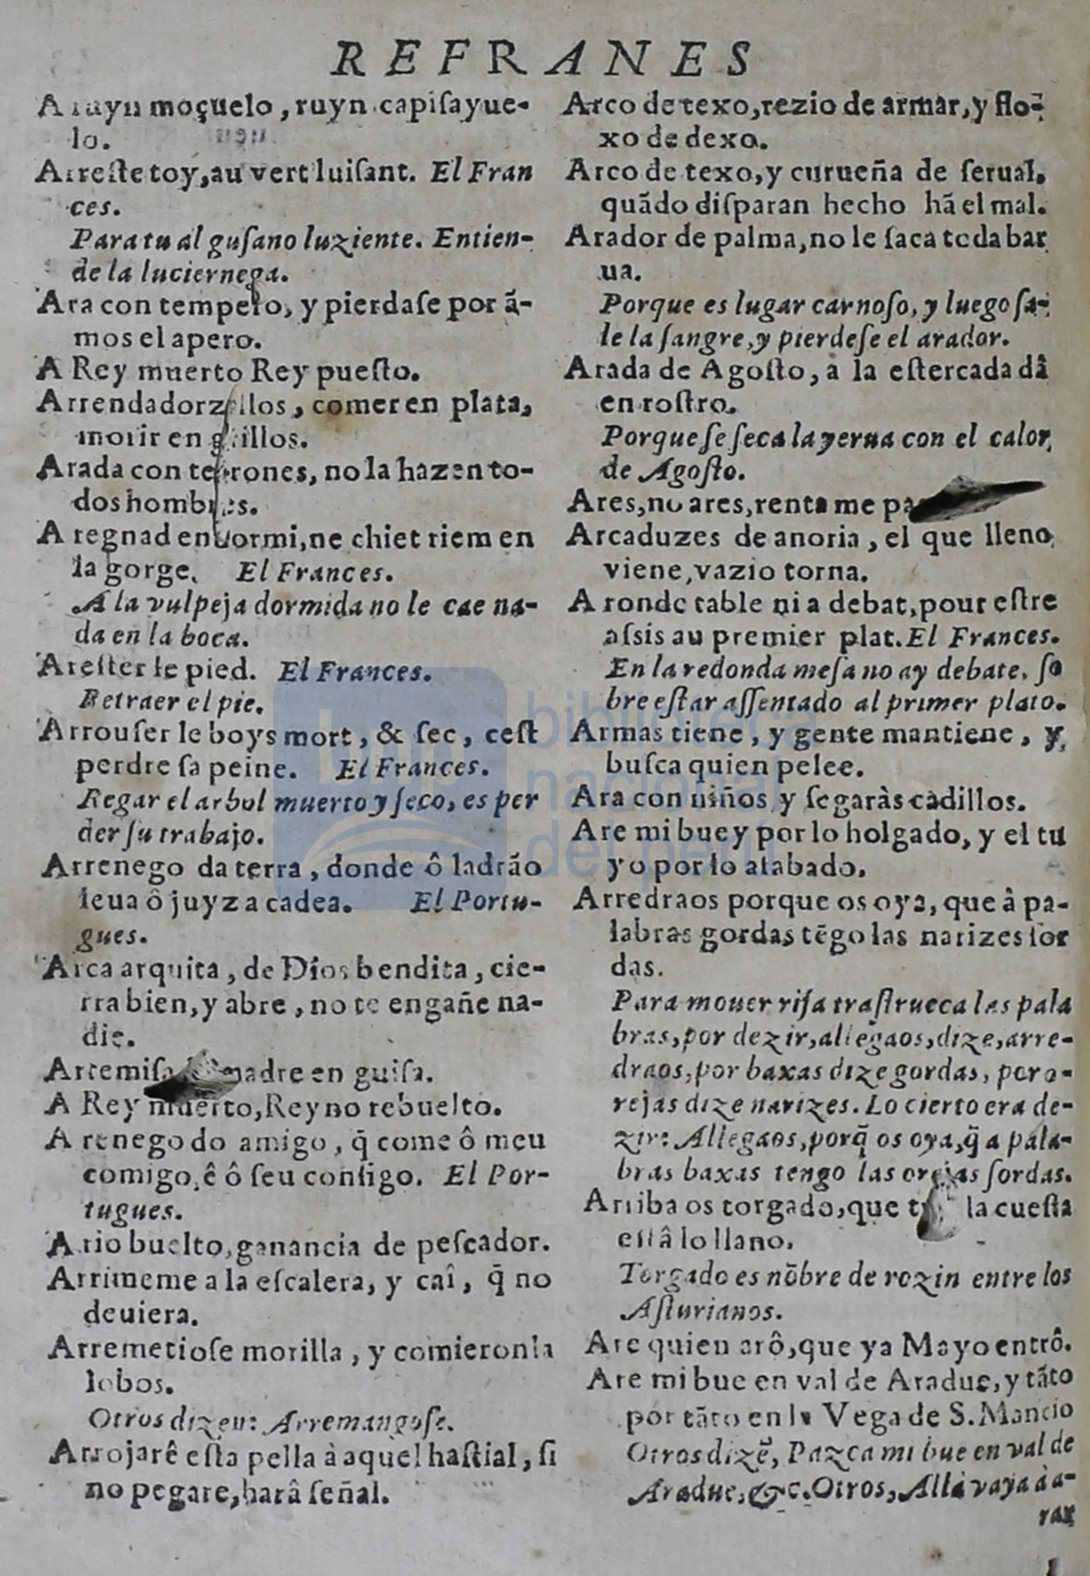 REFRANES
A ruyn moçuelo, ruyn capisayue-
lo.
Arreste toy, au vert luisant. El Fran
ces.
Para tu al gusano luziente. Entien-
de la luciernega.
Ara con tempero, y pierdase por ã-
mos el apero.
A Rey muerto Rey puesto.
Arrendadorzillos, comer en plata,
morir en grillos.
Arada con terrones, no la hazen to-
dos hombres.
A regnad endormi, ne chiet riem en
la gorge. El Frances.
A la vulpeja dormida no le cae na-
da en la boca.
Arester le pied. El Frances.
Retraer el pie.
Arrouser le boys mort, & sec, cest
perdre sa peine. El Frances.
Regar el arbol muerto y seco, es per
der su trabajo.
Arrenego da terra, donde ô ladrão
leua ô juyz a cadea. El Portu-
gues.
Arca arquita, de Dios bendita, cie-
rra bien, y abre, no te engañe na-
die.
Artemisa madre en guisa.
A Rey muerto, Reyno rebuelto.
A renego do amigo, q̃ come ô meu
comigo, ê ô seu consigo. El Por-
tugues.
A rio buelto, ganancia de pescador.
Arrimeme a la escalera, y caî, q̃ no
deuiera.
Arremetiose morilla, y comieronla
lobos.
Otros dizen: Arremangose.
Arrojarê esta pella à aquel hastial, si
no pegare, harâ señal.
Arco de texo, rezio de armar, y flo-
xo de dexo.
Arco de texo, y curueña de serual,
quãdo disparan hecho hã el mal.
Arador de palma, no le saca toda bar
ua.
Porque es lugar carnoso, y luego sa-
le la sangre, y pierdese el arador.
Arada de Agosto, à la estercada dâ
en rostro.
Porque se seca la yerua con el calor,
de Agosto.
Ares, no ares, renta me
Arcaduzes de anoria, el que lleno,
viene, vazio torna.
A ronde table ni a debat, pour estre
assis au premier plat. El Frances.
En la redonda mesa no ay debate, so
bre estar assentado al primer plato.
Armas tiene, y gente mantiene, y,
busca quien pelee.
Ara con niños, y segaràs cadillos.
Are mi buey por lo holgado, y el tu
yo por lo alabado.
Arredraos porque os oya, que â pa-
labras gordas tẽgo las narizes sor
das.
Para mouer risa trastrueca las pala
bras, por dezir, allegaos, dize, arre-
draos, por baxas dize gordas, por o-
rejas dize narizes. Lo cierto era de-
zir: Allegaos, porq̃ os oya, q̃ a pala-
bras baxas tengo las orejas sordas.
Arriba os torgado, que la cuesta
està lo llano.
Torgado es nõbre de rozin entre los
Asturianos.
Are quien arô, que ya Mayo entrô.
Are mi bue en val de Aradue, y tãto
por tãto en la Vega de S. Mancio
Otros dizẽ, Pazca mi bue en val de
Aradue, &c. Otros, Allà vaya à a-
rar,
biblioteca
nacional
del perú